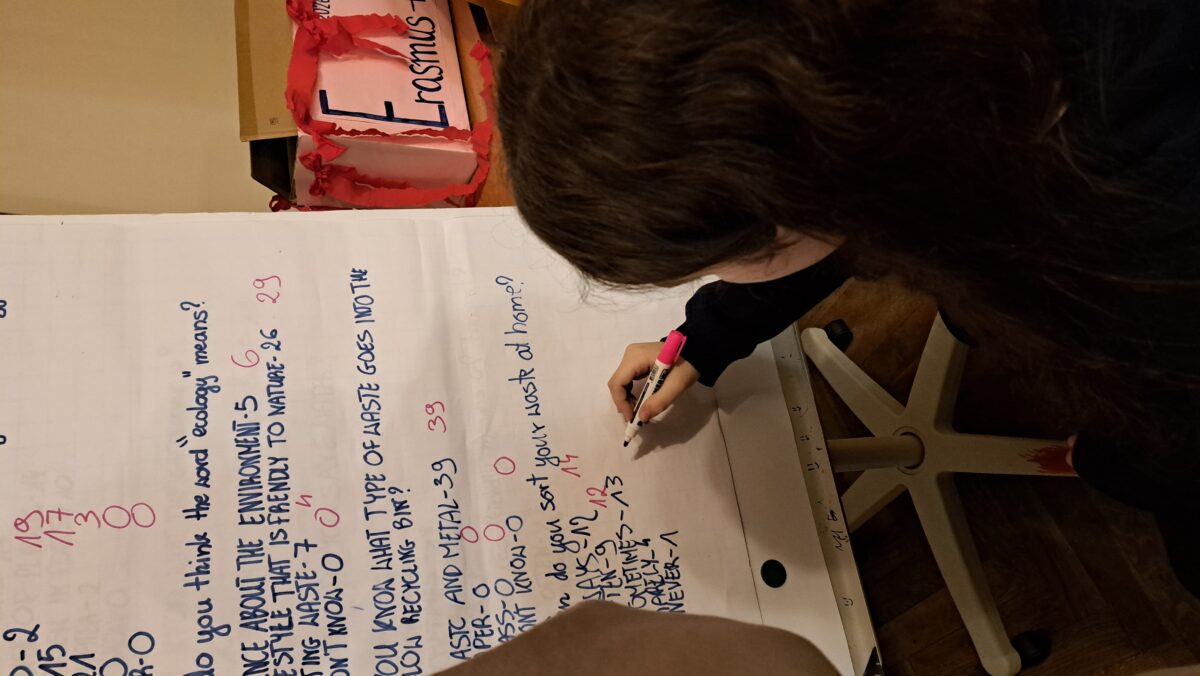 Erasmus +
-2 19
15 17
21 3
0 0
R-0 0
do you think the word "ecology" means?
NCE ABOUT THE ENVIRONMENT-5 6
ESTYLE THAT IS FRENDLY TO NATURE-26 29
TING WASTE-7 4
ON'T KNOW-0 0
YOU KNOW WHAT TYPE OF WASTE GOES INTO THE
LOW RECYCLING BIN?
ASTC AND METAL-39 39
PER-0 0
ASS-0 0
ONT KNOW-0 0
do you sort your waste at home?
WAYS-12 14
TEN-9 12
OMETIMES-13
ARELY-4
NEVER-1